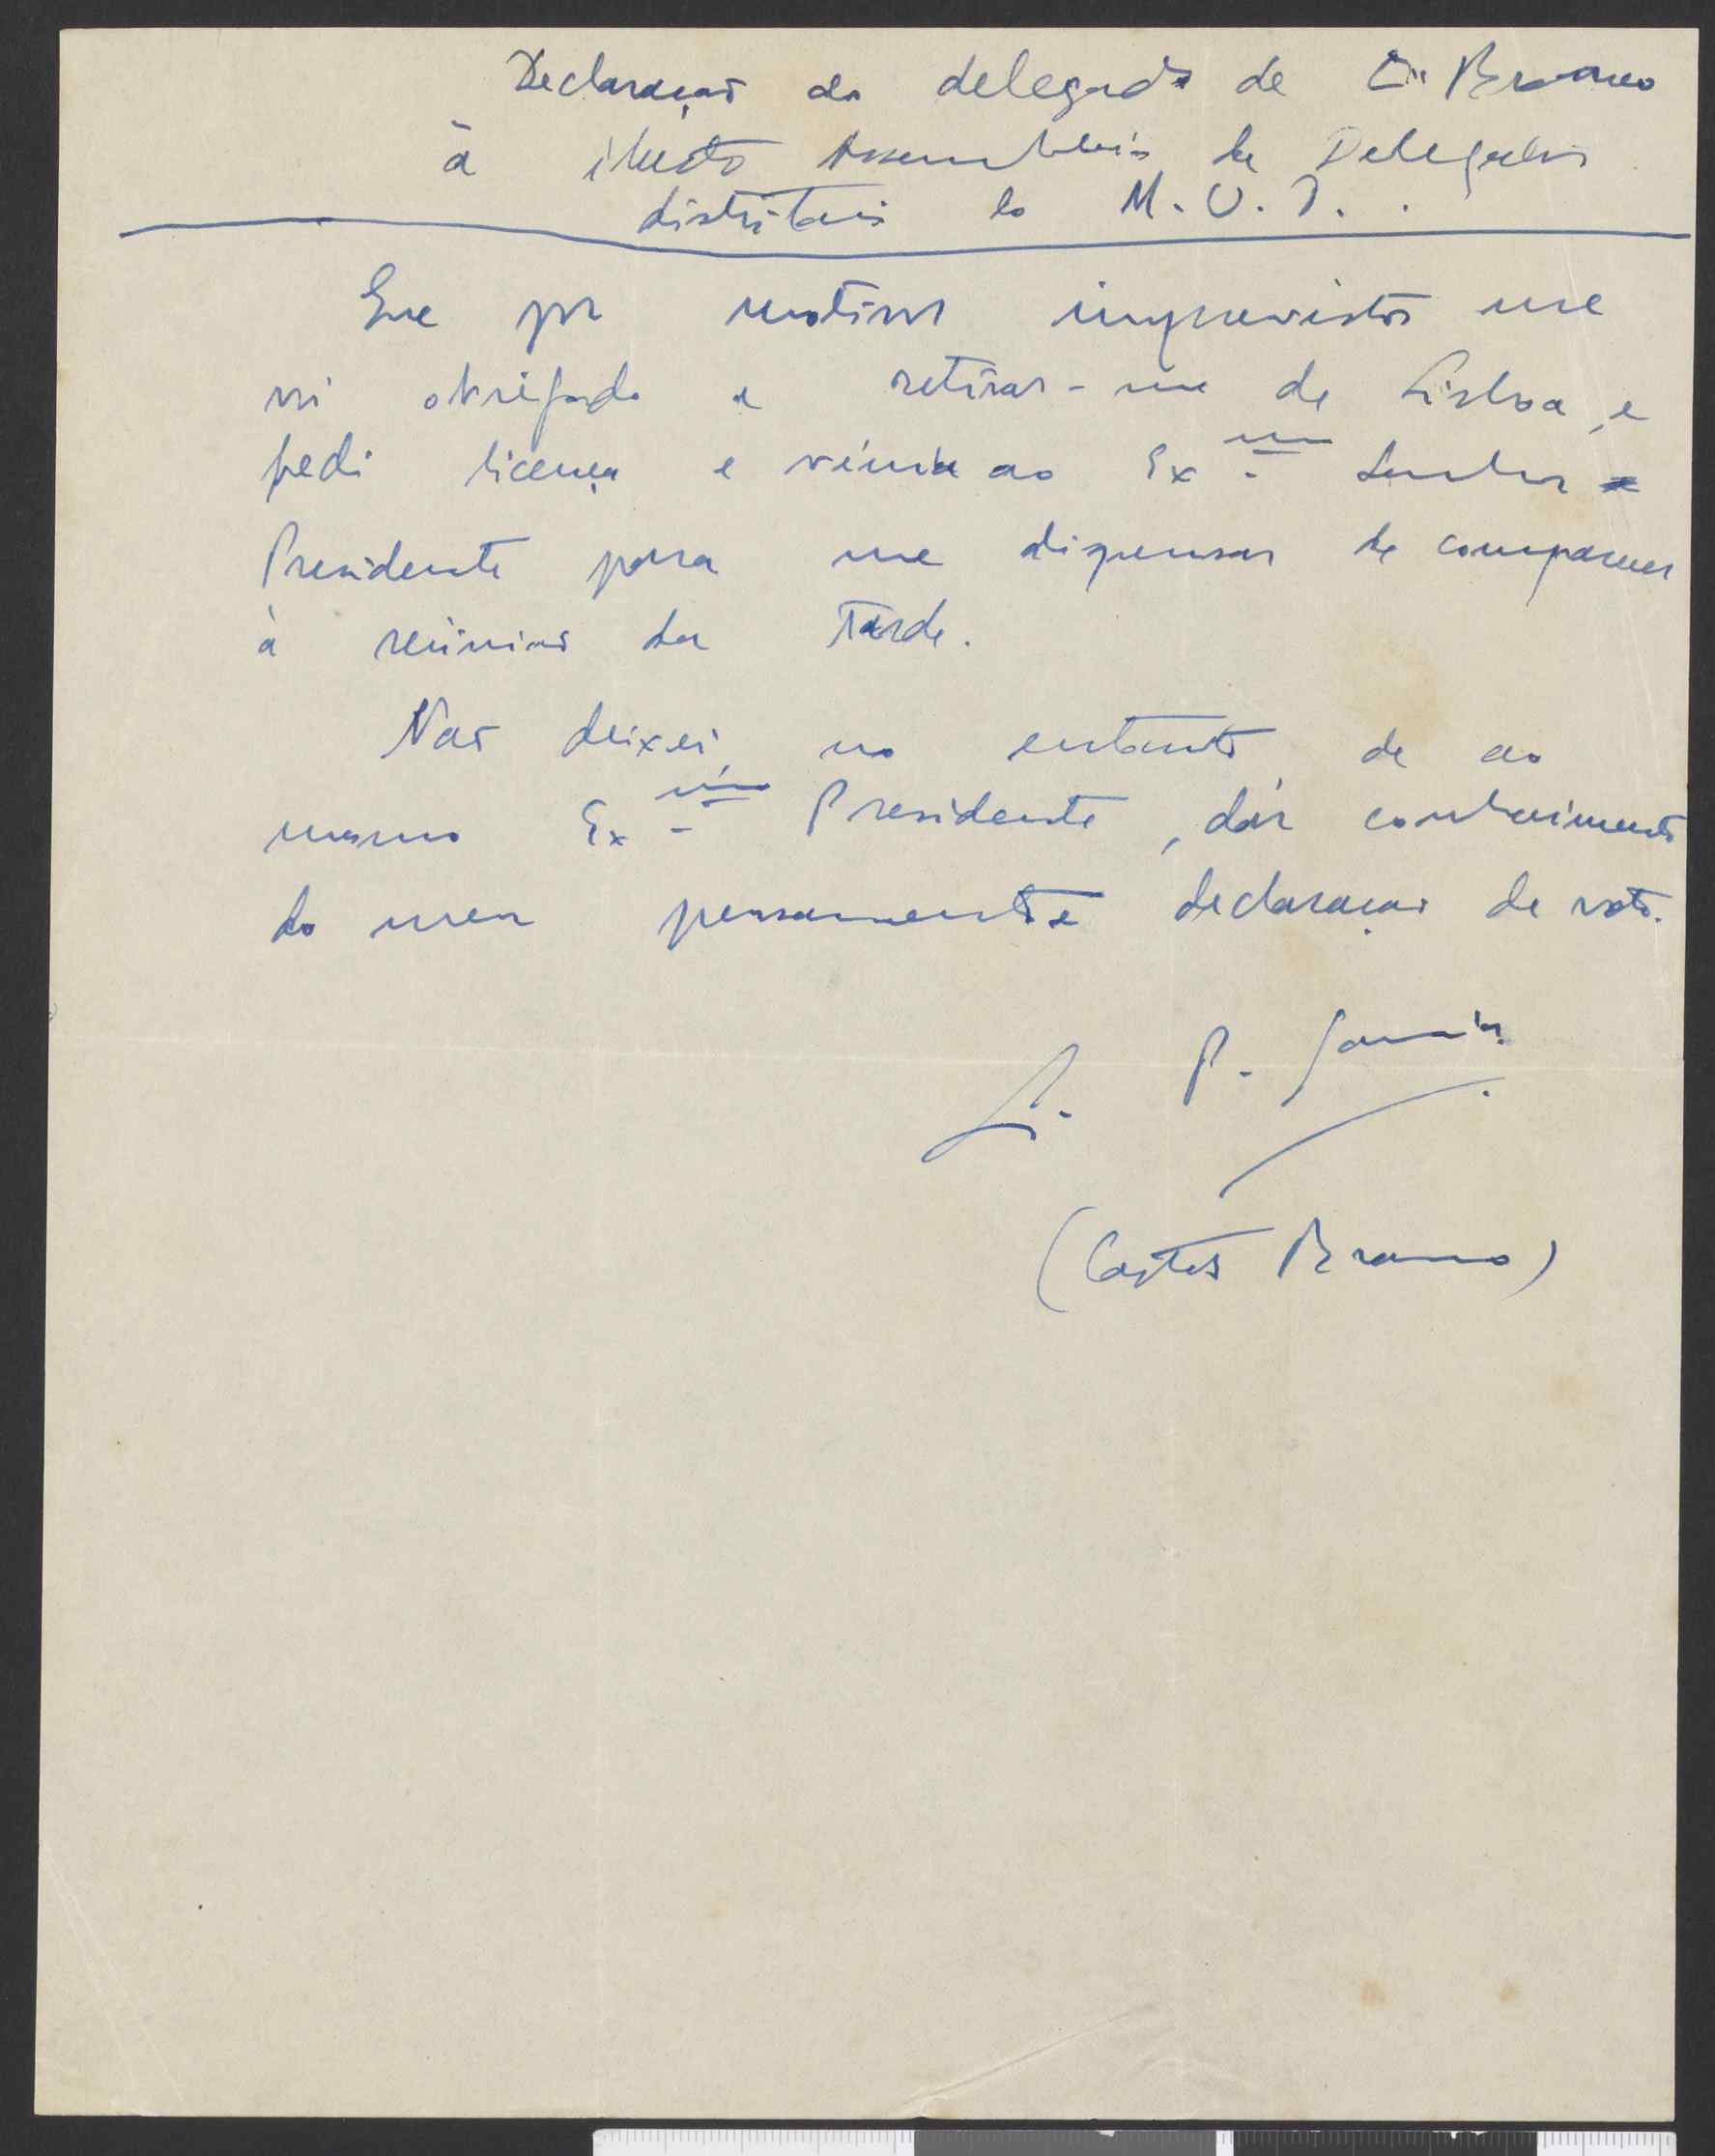 Declaração do delegado de C. Branco
à ilustre Assembleia de Delegados
distritais do M.U.D..
Que por motivos imprevistos me
vi obrigado a retirar-me de Lisboa, e
pedi licença e vénia ao Exmo Senhor
Presidente para me dispensar de comparecer
à reünião da tarde.
Não deixei, no entanto, de ao
mesmo Exmo Presidente, dár conhecimento
do meu pensamento e declaração de voto.
P.
(Castelo Branco)